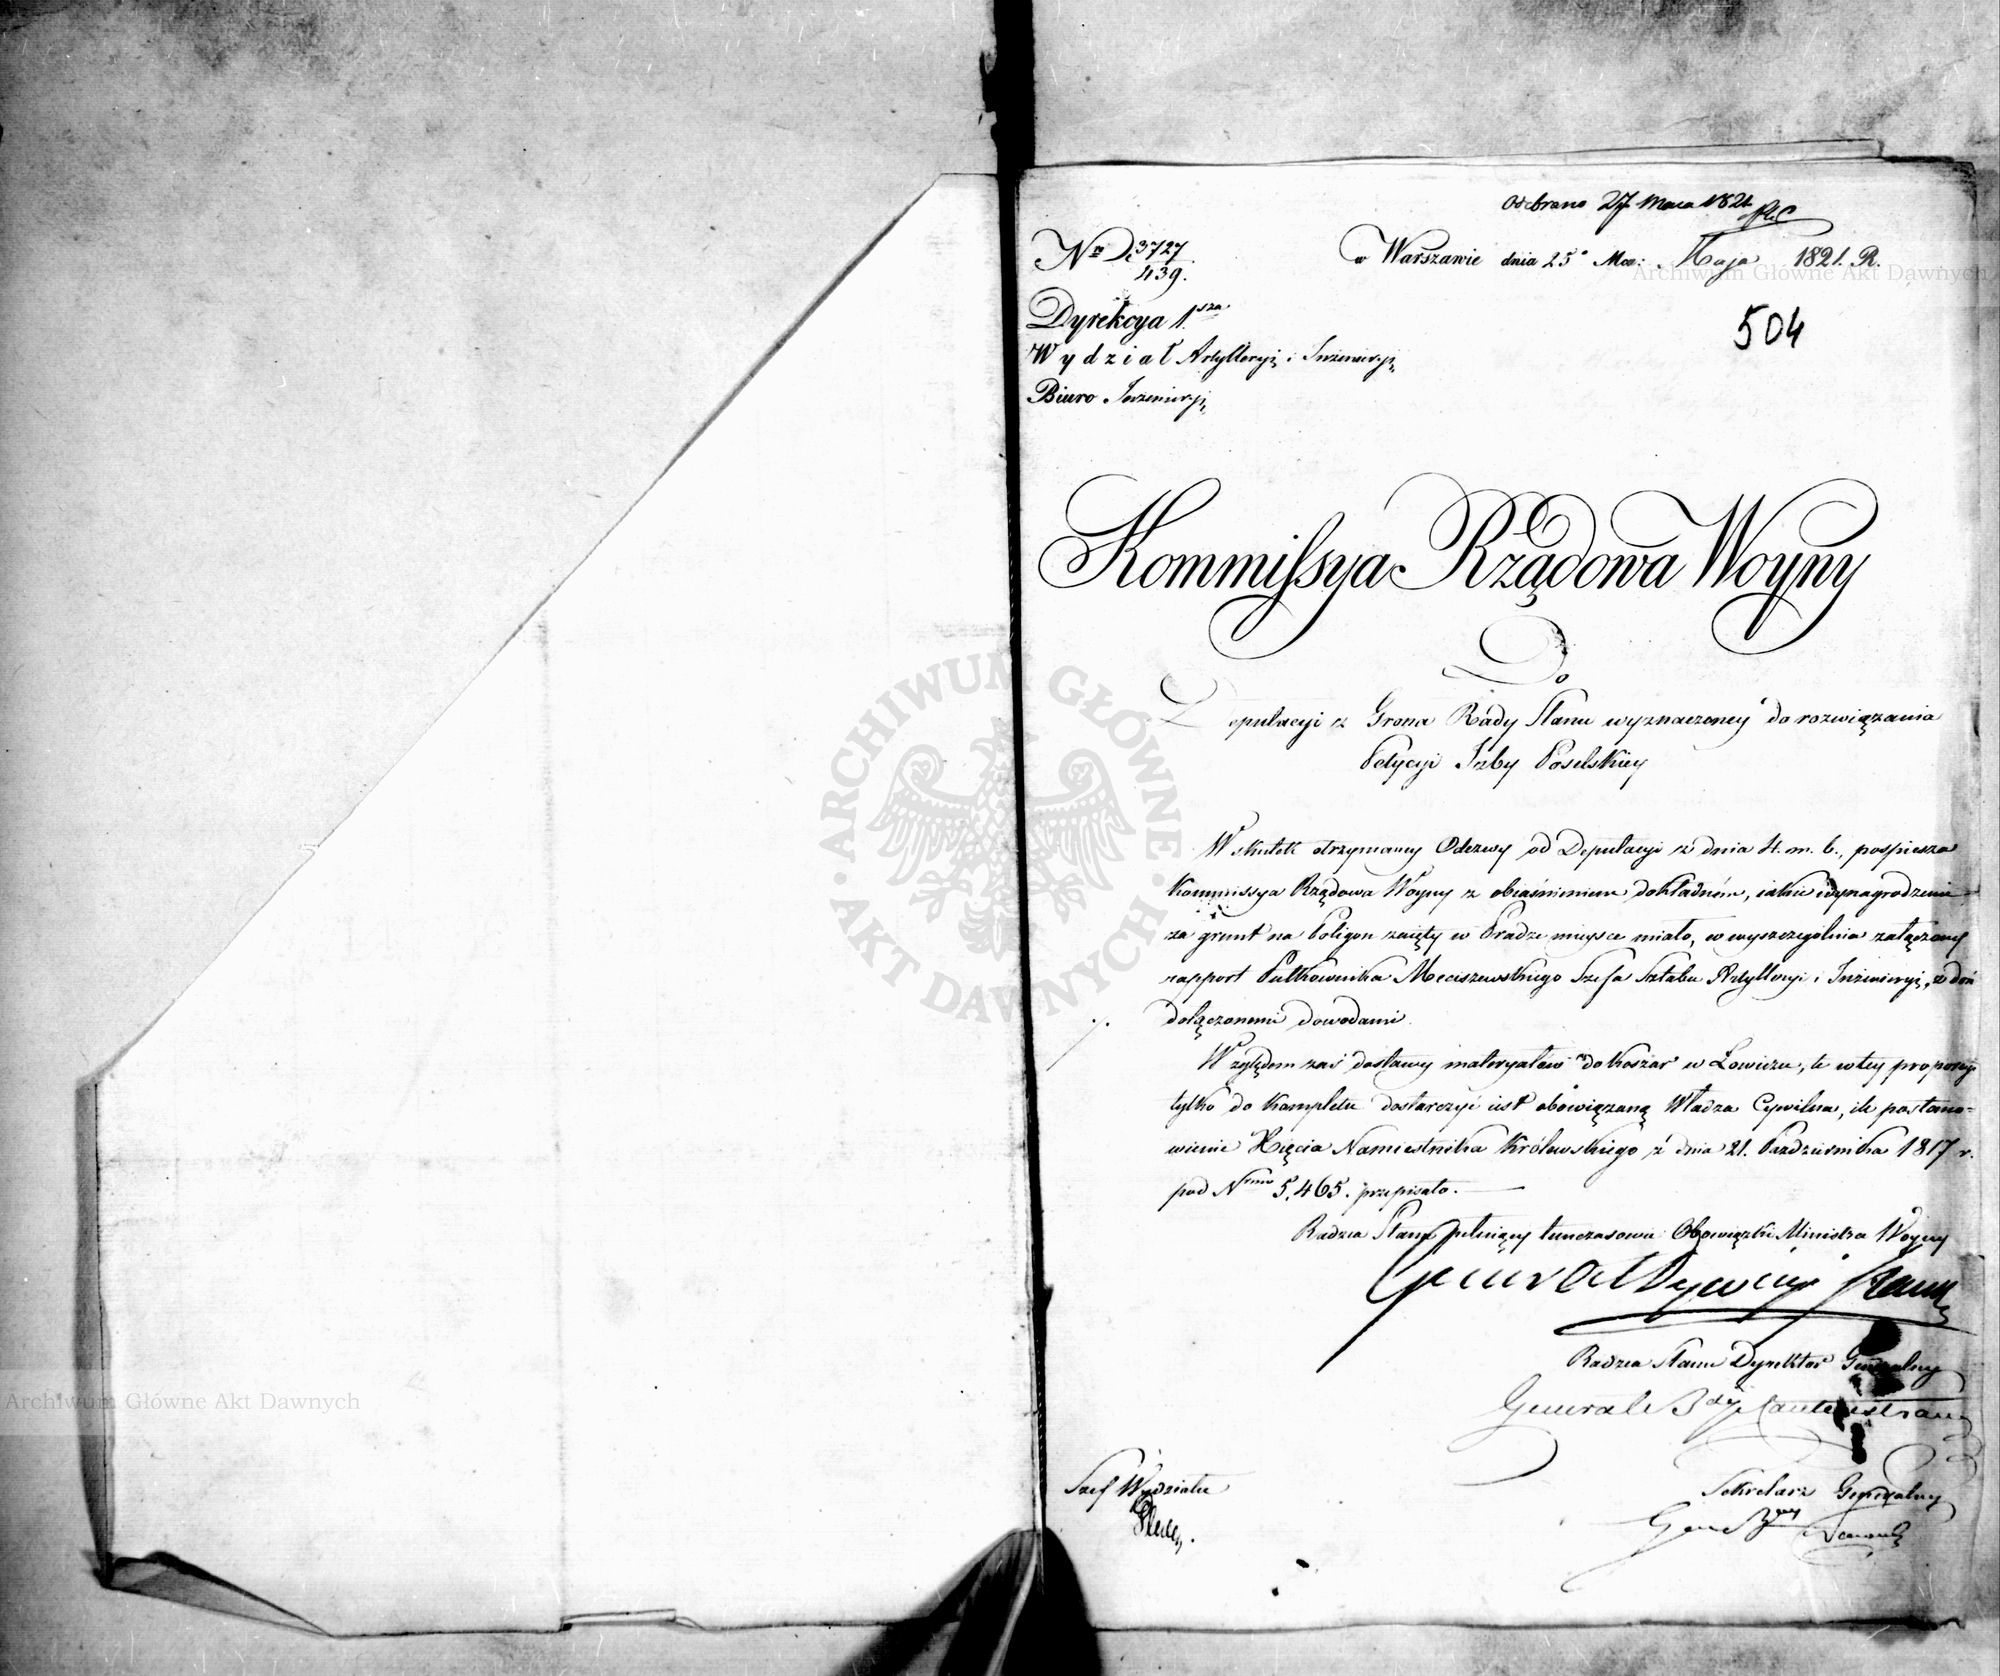 Odebrano 27 Maia 1821
Nro D 3727/439.
w Warszawie dnia 25° Mca: Maja 1821. R.
504
Dyrekcya 1.sza
Wydział Artylleryi i Inżenieryi
Biuro Inżenieryi
Kommissya Rządowa Woyny
Do
Deputacyi z Grona Rady Stanu wyznaczoney do rozwiązania
Petycyi Izby Poselskiey
W skutek otrzymaney Odezwy od Deputacyi z dnia 4. m. b., pospiesza
Kommissya Rządowa Woyny z obiaśnieniem dokładném, iakie wynagrodzenie
za grunt na Poligon zaięty w Pradze mieysce miało, wyszczególnia załączony
rapport Pułkownika Meciszewskiego Szefa Sztabu Artylleryi i Inżenieryi, z doń
dołączonemi dowodami.
Względem zaś dostawy materyałów do koszar w Łowiczu, te w tey proporcyi
tylko do kompletu dostarczyć iest obowiązaną Władza Cywilna, ile postano-
wienie Xięcia Namiestnika Królewskiego z dnia 21. Października 1817 r.
pod Nrmo 5,465. przepisało.
Radzca Stanu pełniący tymczasowie Obowiązki Ministra Woyny
Generał Dywizyi
Radzca Stanu Dyrektor Generalny
Generał Bdy
Szef Wydziału
Sekretarz Generalny
Archiwum Główne Akt Dawnych
ARCHIWUM GŁÓWNE AKT DAWNYCH
Archiwum Główne Akt Dawnych